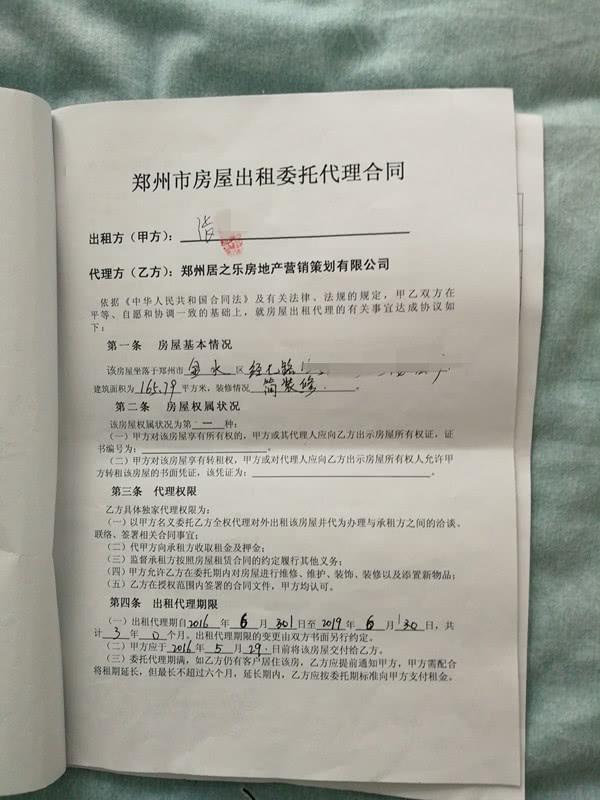 郑州市房屋出租委托代理合同
出租方（甲方）：
代理方（乙方）：郑州居之乐房地产营销策划有限公司
依据《中华人民共和国合同法》及有关法律、法规的规定，甲乙双方在
平等、自愿和协调一致的基础上，就房屋出租代理的有关事宜达成协议如
下：
第一条 房屋基本情况
该房屋坐落于郑州市 金水 区
建筑面积为 165.79 平方米，装修情况 简装修 。
第二条 房屋权属状况
该房屋权属状况为第 一 种：
（一）甲方对该房屋享有所有权的，甲方或其代理人应向乙方出示房屋所有权证，证
书编号为： 。
（二）甲方对该房屋享有转租权，甲方或对代理人应向乙方出示房屋所有权人允许甲
方转租该房屋的书面凭证，该凭证为： 。
第三条 代理权限
乙方具体独家代理权限为：
（一）以甲方名义委托乙方全权代理对外出租该房屋并代为办理与承租方之间的洽谈、
联络、签署相关合同事宜；
（二）代甲方向承租方收取租金及押金；
（三）监督承租方按照房屋租赁合同的约定履行其他义务；
（四）甲方允许乙方在委托期内对房屋进行维修、维护、装饰、装修以及添置新物品；
（五）乙方在授权范围内签署的合同文件，甲方均认可。
第四条 出租代理期限
（一）出租代理期自 2016 年 6 月 日至 2019 年 6 月 30 日，共
计 3 年 0 个月。出租代理期限的变更由双方书面另行约定。
（二）甲方应于 2016 年 5 月 29 日前将该房屋交付给乙方。
（三）委托代理期满，如乙方仍有客户居住该房，乙方应提前通知甲方，甲方需配合
将租期延长，但最长不超过六个月，延长期内，乙方应按委托期标准向甲方支付租金。